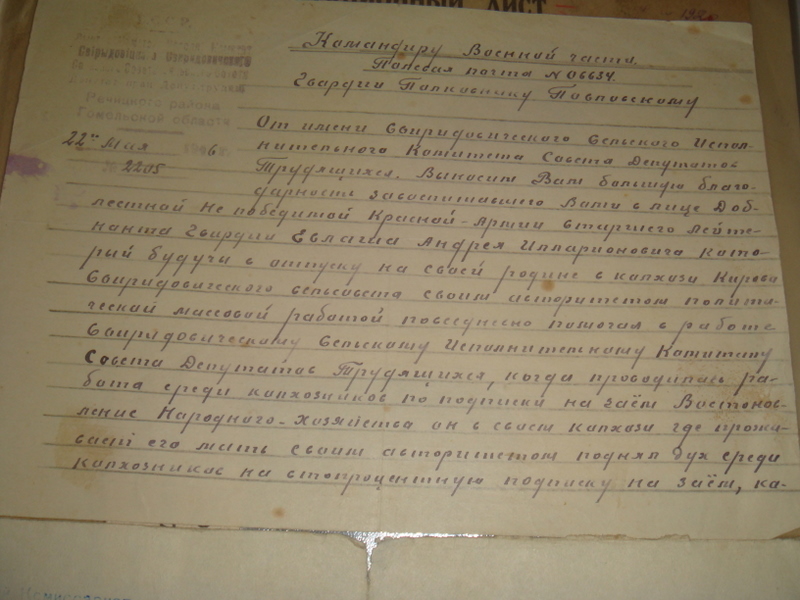 ЛИСТ
Командиру Военной части.
Полевая почта № 06634.
Гвардии Полковнику Павловскому
Речицкого района
Гомельской области
22го Мая 1946 г.
№ 2205
От имени Свиридовического Сельского Испол-
нительного Комитета Совета Депутатов
Трудящихся. Выносим Вам большую благо-
дарность за воспитавшего Вами в лице Доб-
лестной Непобедимой Красной-Армии Старшего Лейте-
нанта Гвардии Евлаша Андрея Илларионовича кото-
рый будучи в отпуску на своей родине в колхози Кирова
Свиридовического сельсовета своим авторитетом полити-
ческой массовой работой повседневно помогал в работе
Свиридовическому Сельскому Исполнительному Комитету
Совета Депутатов Трудящихся, когда проводилась ра-
бота среди колхозников по подписки на заём Востонов-
ление Народного-Хозяйства он в своем колхози где прожи-
ваєт его мать своим авторитетом поднял дух среди
колхозников на стопроцентную подписку на заём, ка-